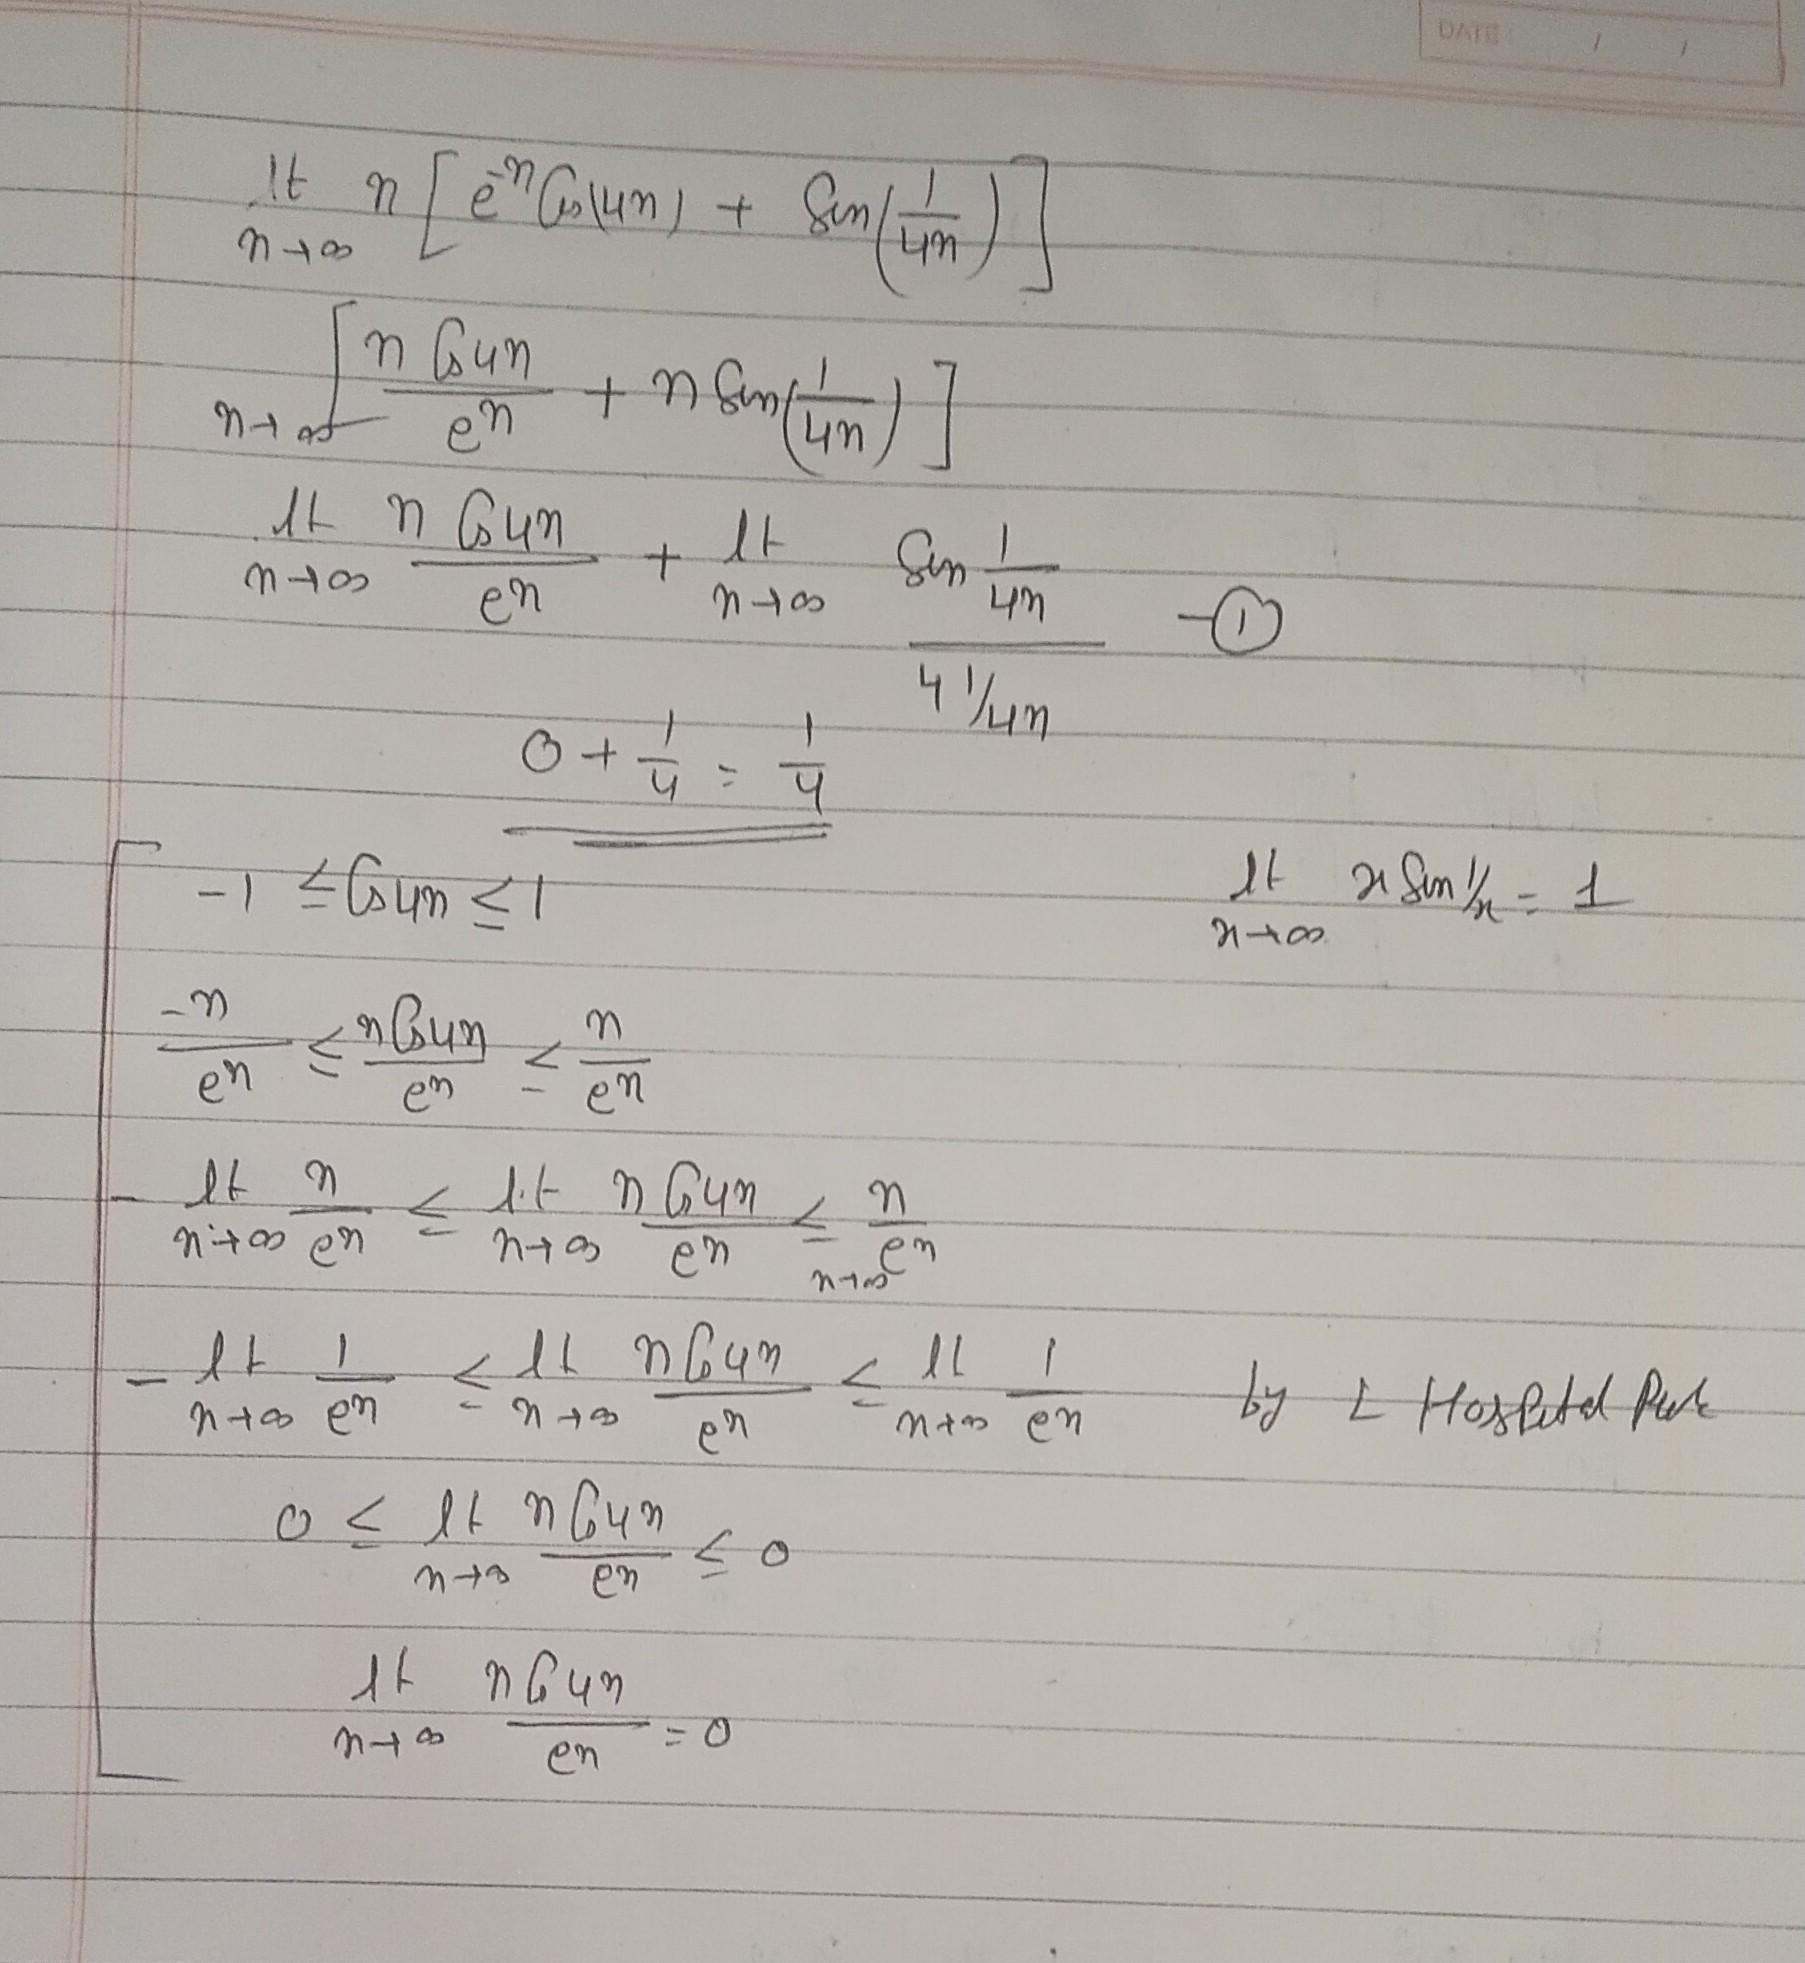 DATE / /
lt n→∞ n [ e^-n Cos(4n) + Sin(1/4n) ]
n→∞ [ n Cos4n / e^n + n Sin(1/4n) ]
lt n→∞ n Cos4n / e^n + lt n→∞ Sin 1/4n / 4 1/4n — ①
0 + 1/4 = 1/4
-1 ≤ Cos4n ≤ 1
lt x→∞ x Sin 1/x = 1
-n/e^n ≤ n Cos4n / e^n ≤ n/e^n
- lt n→∞ n/e^n ≤ lt n→∞ n Cos4n / e^n ≤ n→∞ n/e^n
- lt n→∞ 1/e^n ≤ lt n→∞ n Cos4n / e^n ≤ lt n→∞ 1/e^n by L Hospital Rule
0 ≤ lt n→∞ n Cos4n / e^n ≤ 0
lt n→∞ n Cos4n / e^n = 0